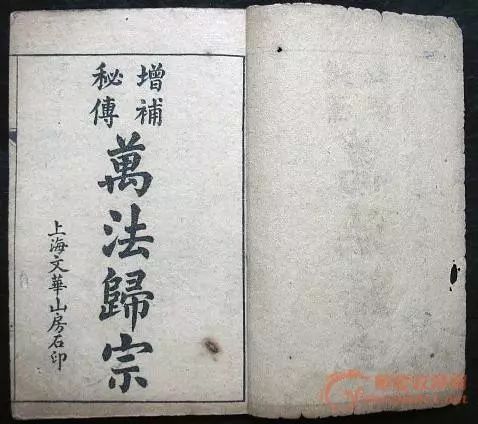 增補
秘傳
萬法歸宗
上海文華山房石印